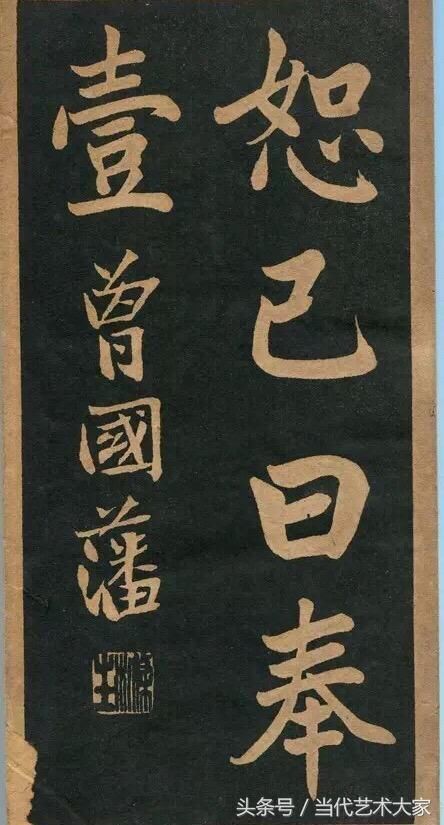 恕已曰奉
壹曾國藩
头条号／当代艺术大家